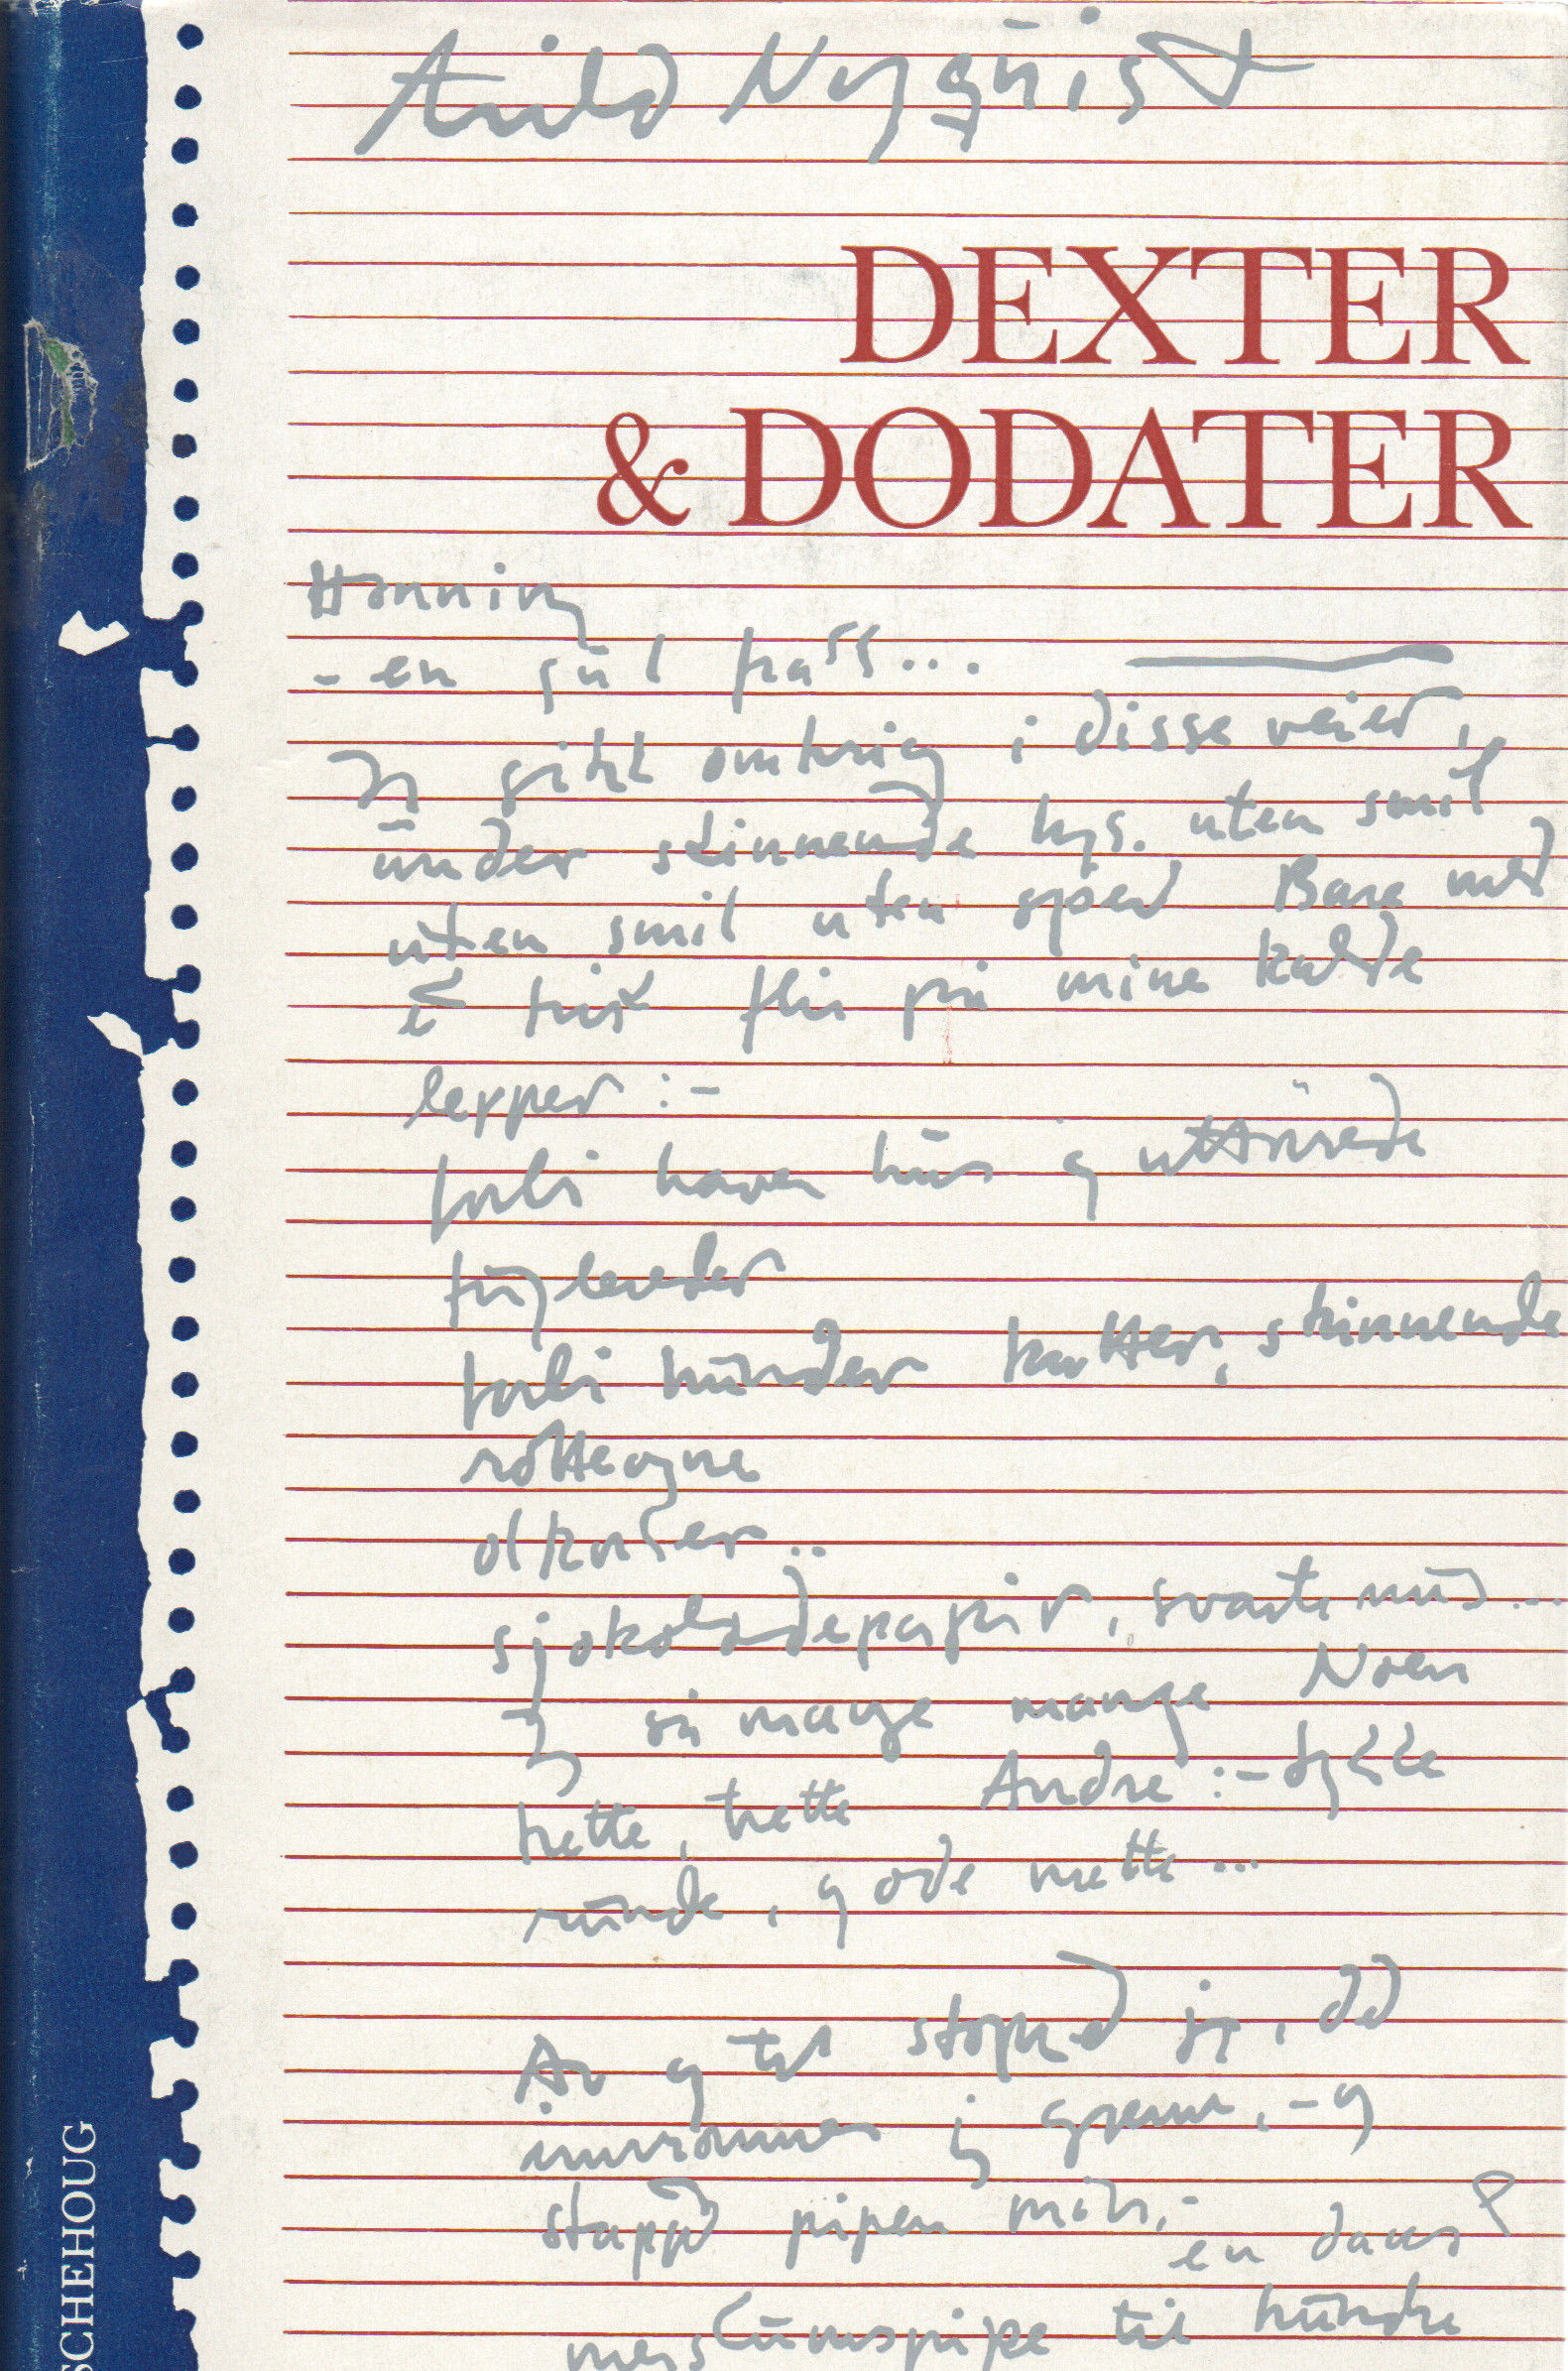 Arild Nyquist
DEXTER
& DODATER
Honning
- en gul pass...
Jeg gikk omkring i disse veier,
under skinnende lys. uten smil
uten smil uten gråd Bare med
et trist flir på mine kalde
lepper :-
forbi haver hus og uttørrede
fuglereder
forbi hunder katter, skinnende
rotteøyne
ølkorker..
sjokoladepapir, svarte mus...
Og så mange mange Noen
trette, trette Andre :- tykke
runde, gode mette...
Av og til stopped jeg, dd
innrømmer jeg gjerne, - og
stapped pipen min, -
en dans
merskumspipe til hundre
SCHEHOUG